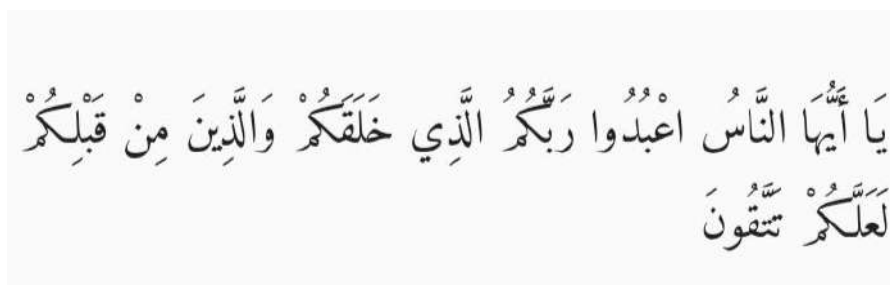 يَا أَيُّهَا النَّاسُ اعْبُدُوا رَبَّكُمُ الَّذِي خَلَقَكُمْ وَالَّذِينَ مِنْ قَبْلِكُمْ
لَعَلَّكُمْ تَتَّقُونَ